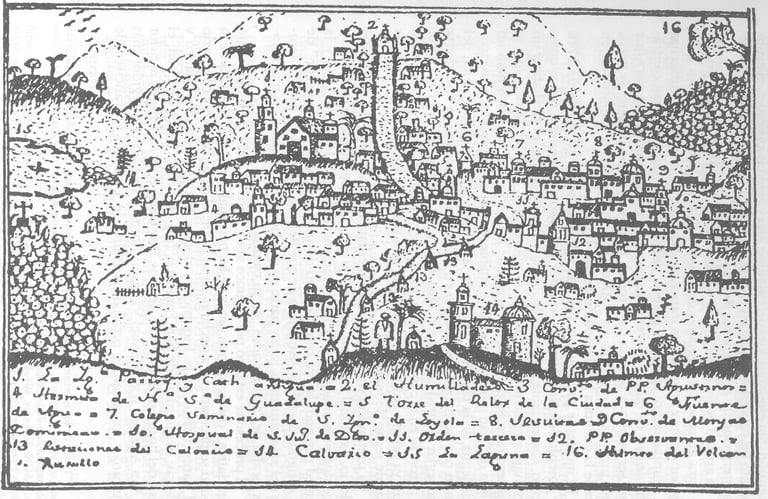 16
2
6
7
8
9
15
4
12
13
14
1. La Ygª Parroq. y Cath antigua = 2. el Humilladero = 3 Conv.to de PP. Agustinos =
4 Hermita de Nª Sª de Guadalupe. = 5 Torre del Relox de la Ciudad = 6 Fuente
de Agua = 7. Colegio Seminario de S. Ign.º de Loyola = 8. Jesuitas 9 Conv.to de Monjas
Dominicas = 10. Hospital de S. J. de Dios. = 11. Orden tercera = 12. PP. Observantes. =
13 Estaciones del Calvario = 14. Calvario = 15 La Laguna = 16. Humeo del Volcan